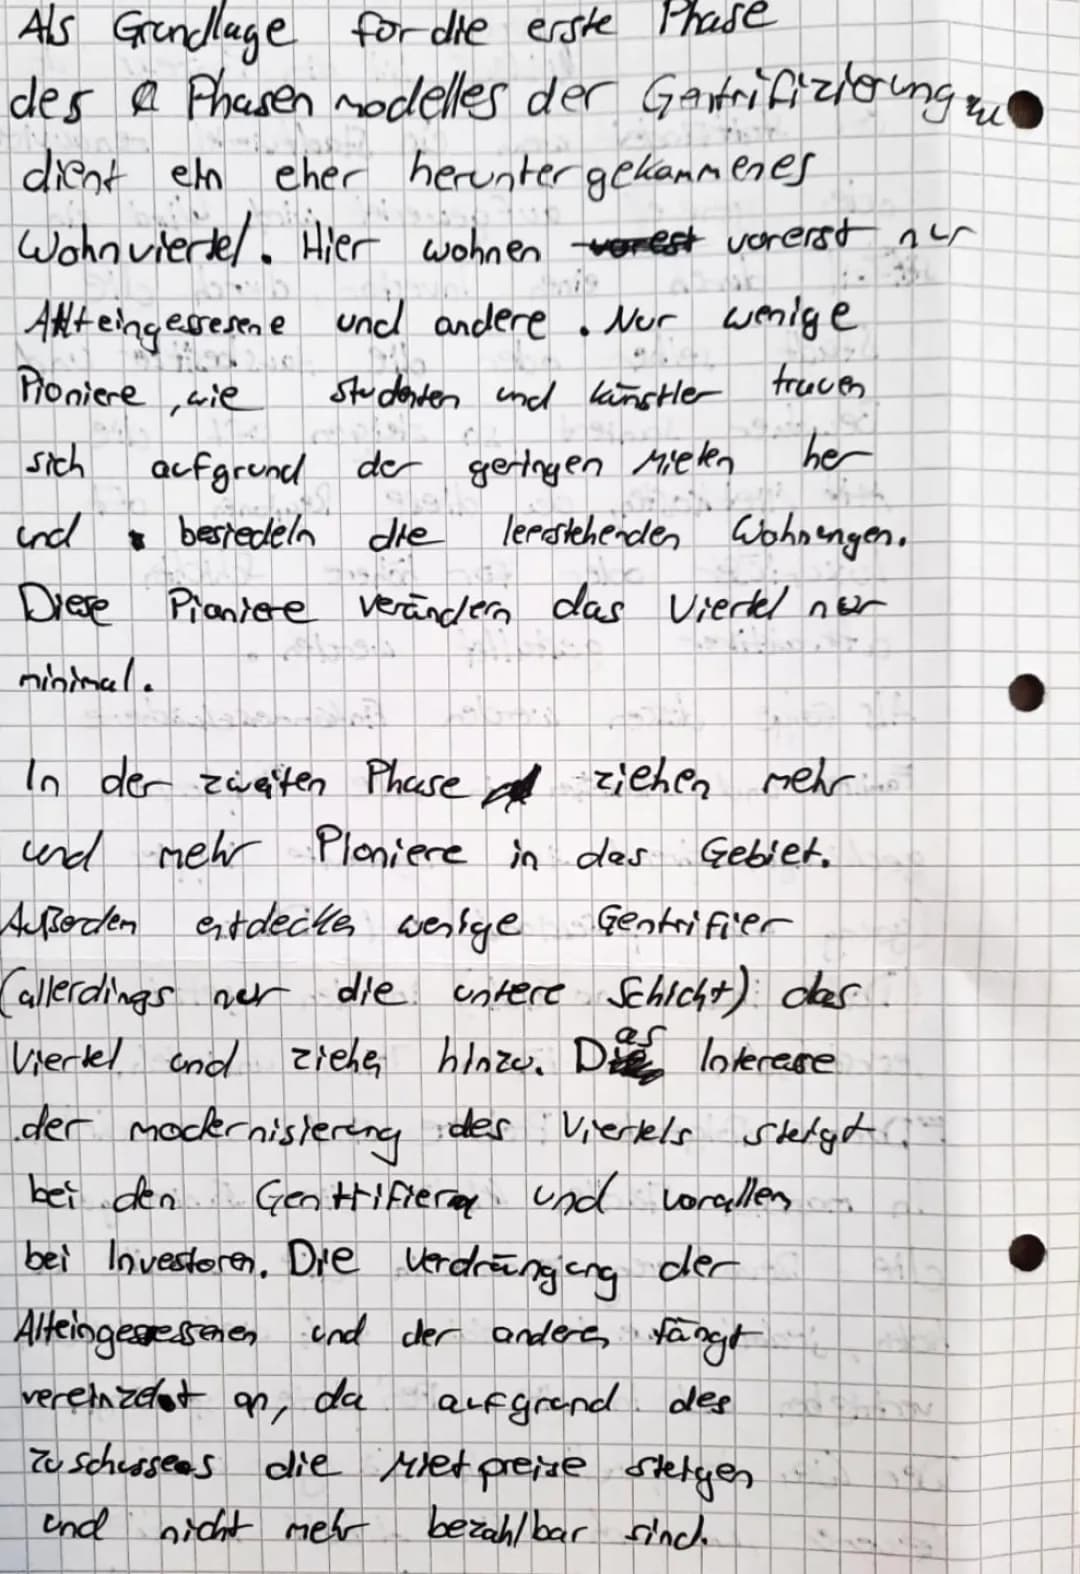 Als Grundlage für die erste Phase
des Phasenmodelles der Gentrifizierung
dient ein eher heruntergekommenes
Wohnviertel. Hier wohnen vorest vorerst nur
Alteingesessene und andere. Nur wenige
Pioniere, wie Studenten und künstler trauen
sich aufgrund der geringen Mieten her
und besiedeln die leerstehenden Wohnungen.
Diese Pioniere verändern das Viertel nur
minimal.
In der zweiten Phase ziehen mehr
und mehr Pioniere in das Gebiet.
Außerdem entdecken wenige Gentrifier
(allerdings nur die untere Schicht) das
Viertel und ziehen hinzu. Das Interesse
der modernisierung des Viertels steigt
bei den Gentrifiern und vorallem
bei Investoren. Die Verdrängung der
Alteingesessenen und der anderen fängt
vereinzelt an, da aufgrund des
Zuschusses die Mietpreise steigen
und nicht mehr bezahlbar sind.